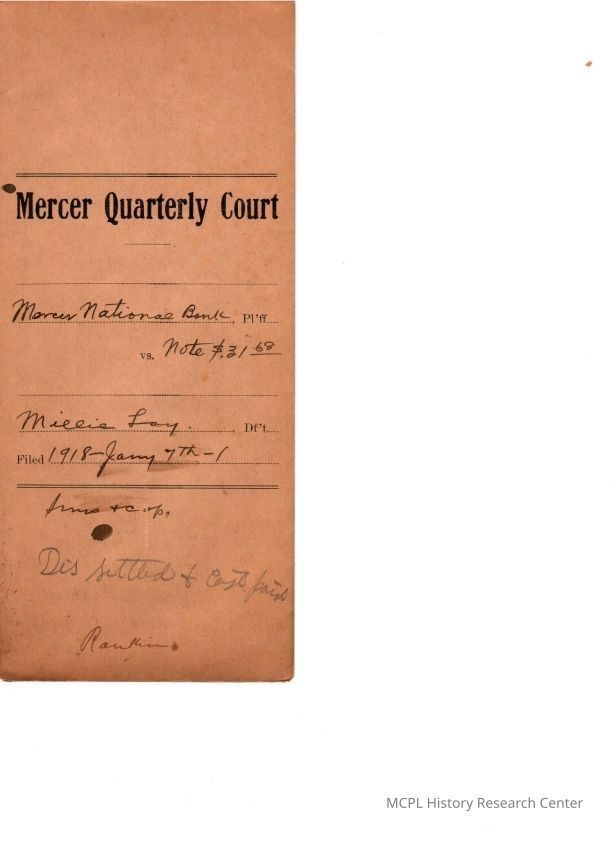 Mercer Quarterly Court
Mercer National Bank, Pl'ff.
vs. Note $31.68
Millie Foy. Df't.
Filed 1918-Jany 7th-1
& cop.
Dis settled & Cost paid
Rankin
MCPL History Research Center